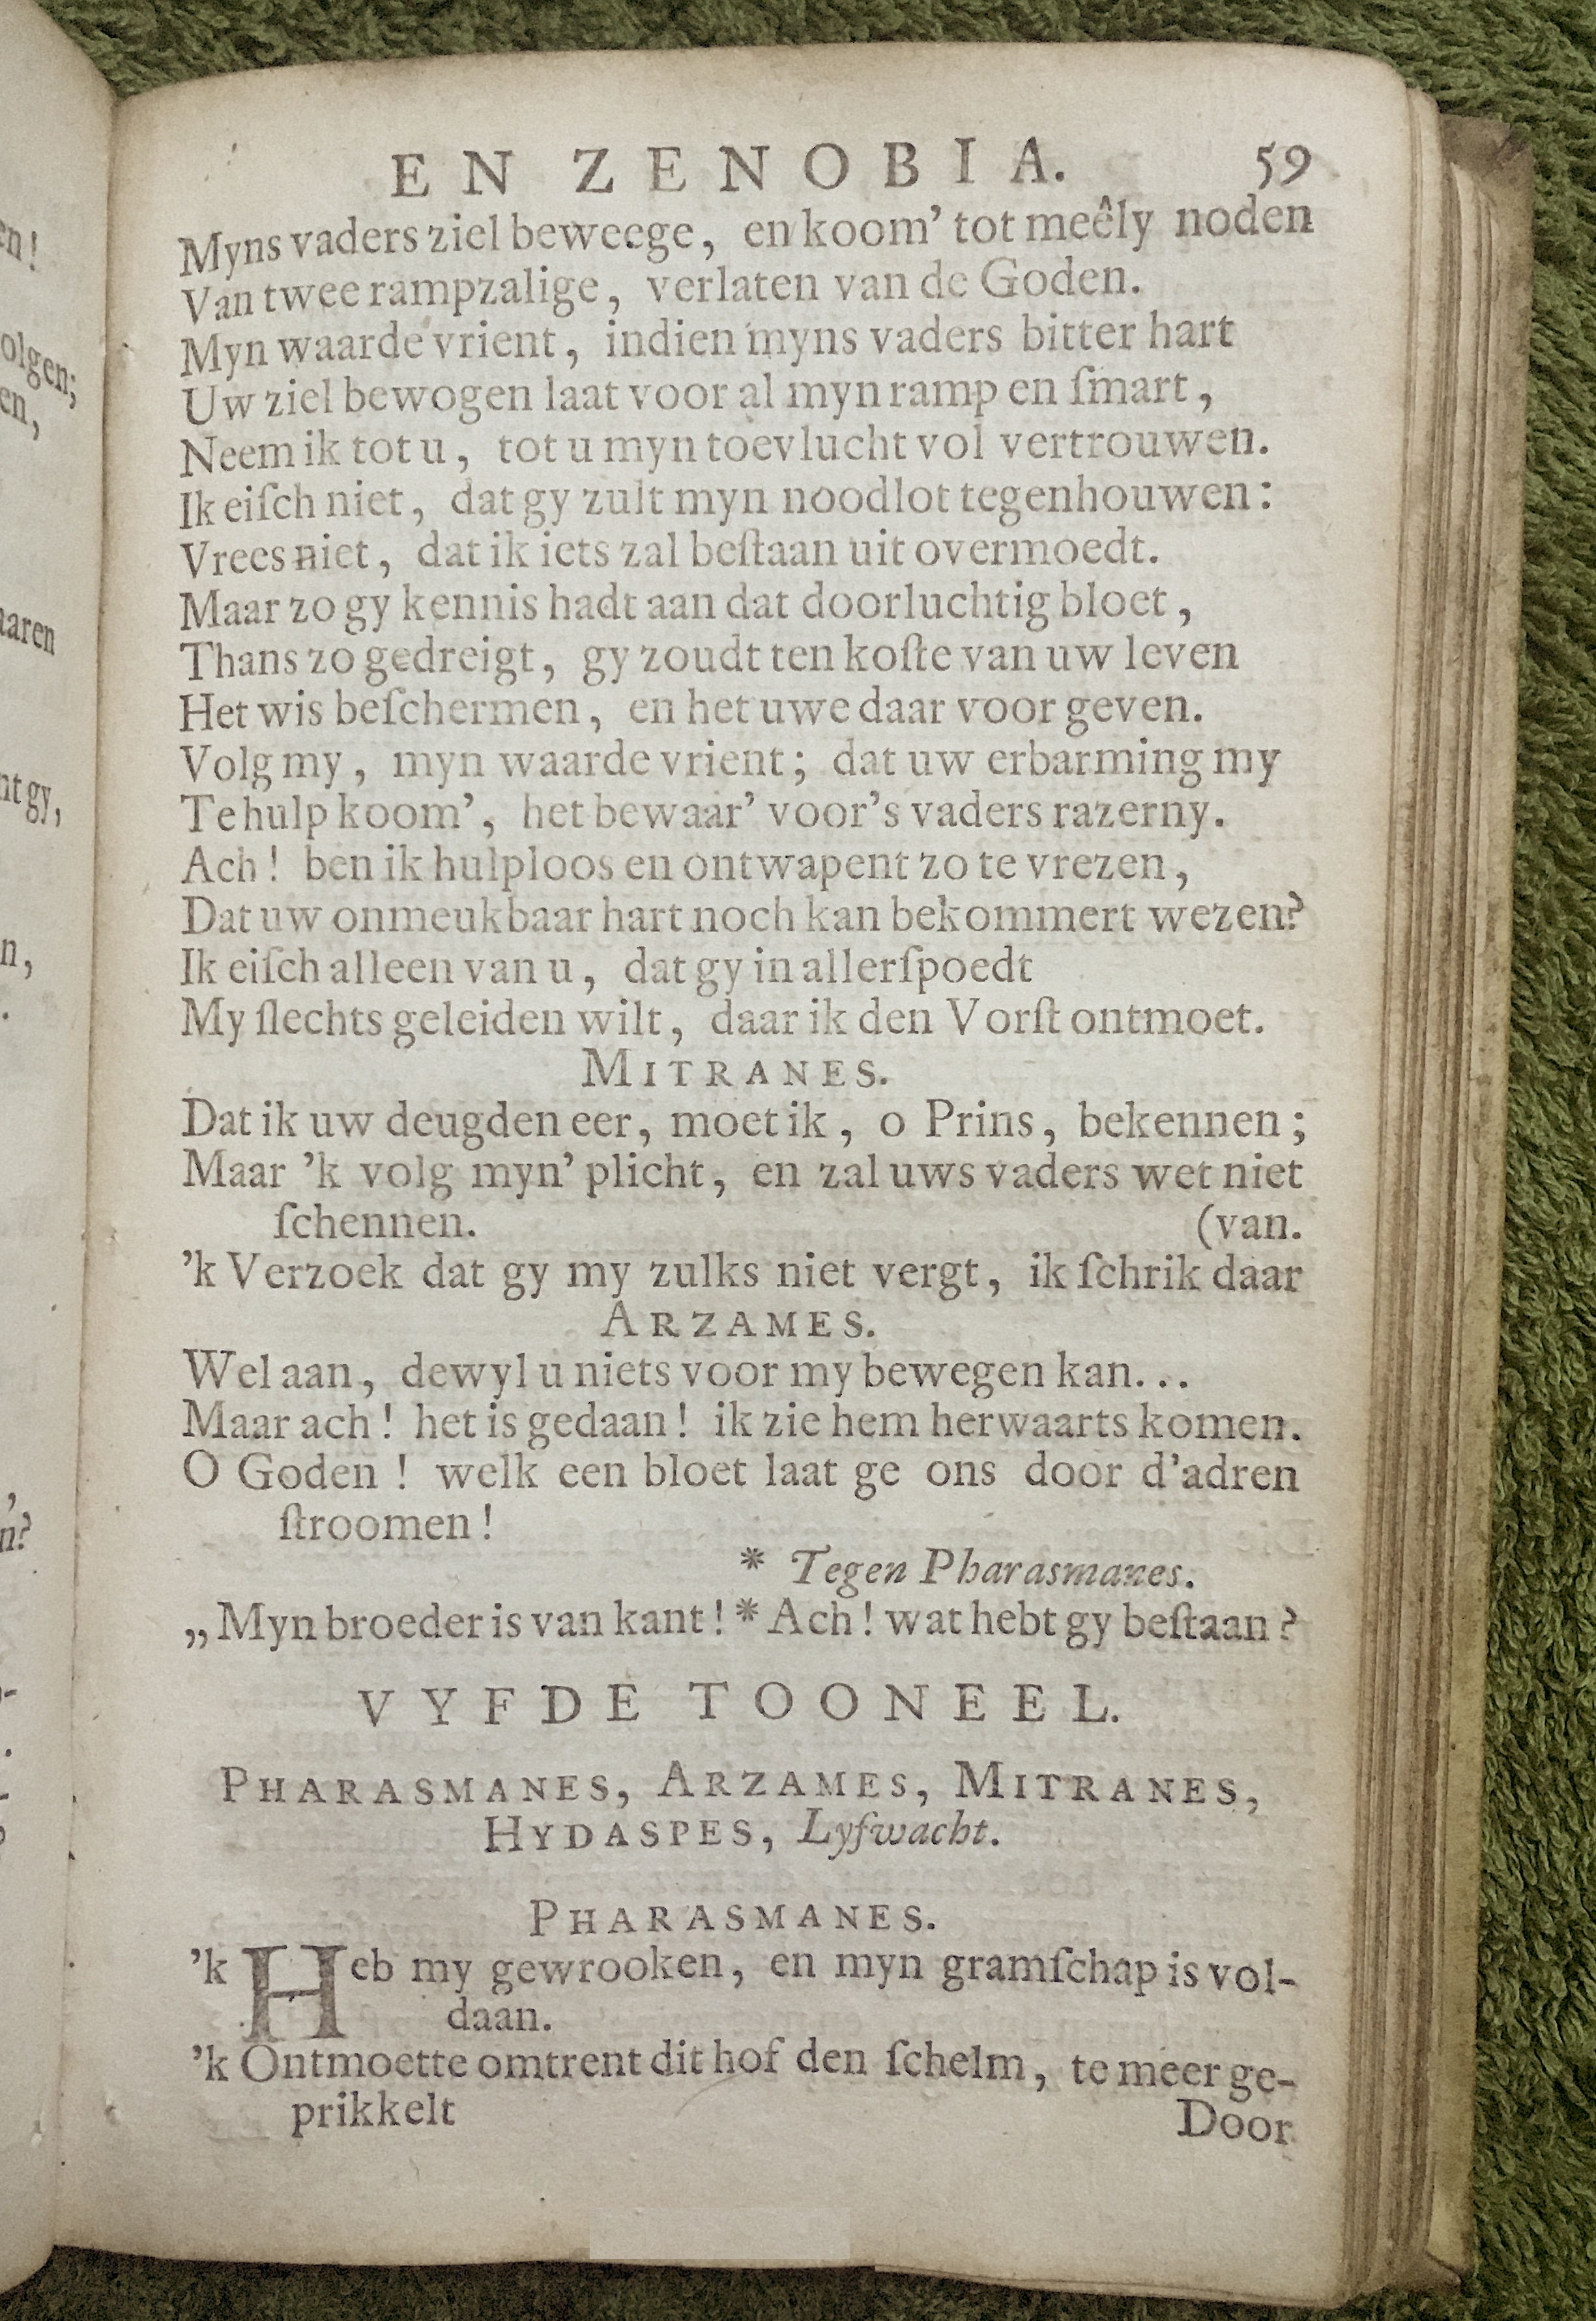 EN ZENOBIA. 59
Myns vaders ziel beweege, en koom' tot meêly noden
Van twee rampzalige, verlaten van de Goden.
Myn waarde vrient, indien myns vaders bitter hart
Uw ziel bewogen laat voor al myn ramp en ſmart,
Neem ik tot u, tot u myn toevlucht vol vertrouwen.
Ik eiſch niet, dat gy zult myn noodlot tegenhouwen:
Vrees niet, dat ik iets zal beſtaan uit overmoedt.
Maar zo gy kennis hadt aan dat doorluchtig bloet,
Thans zo gedreigt, gy zoudt ten koſte van uw leven
Het wis beſchermen, en het uwe daar voor geven.
Volg my, myn waarde vrient; dat uw erbarming my
Te hulp koom', het bewaar' voor's vaders razerny.
Ach! ben ik hulploos en ontwapent zo te vrezen,
Dat uw onmeukbaar hart noch kan bekommert wezen?
Ik eiſch alleen van u, dat gy in allerſpoedt
My ſlechts geleiden wilt, daar ik den Vorſt ontmoet.
MITRANES.
Dat ik uw deugden eer, moet ik, o Prins, bekennen;
Maar 'k volg myn' plicht, en zal uws vaders wet niet
ſchennen. (van.
'k Verzoek dat gy my zulks niet vergt, ik ſchrik daar
ARZAMES.
Wel aan, dewyl u niets voor my bewegen kan...
Maar ach! het is gedaan! ik zie hem herwaarts komen.
O Goden! welk een bloet laat ge ons door d'adren
ſtroomen!
* Tegen Pharasmanes.
„Myn broeder is van kant! * Ach! wat hebt gy beſtaan?
VYFDE TOONEEL.
PHARASMANES, ARZAMES, MITRANES,
HYDASPES, Lyfwacht.
PHARASMANES.
'k Heb my gewrooken, en myn gramſchap is vol-
daan.
'k Ontmoette omtrent dit hof den ſchelm, te meer ge-
prikkelt
Door